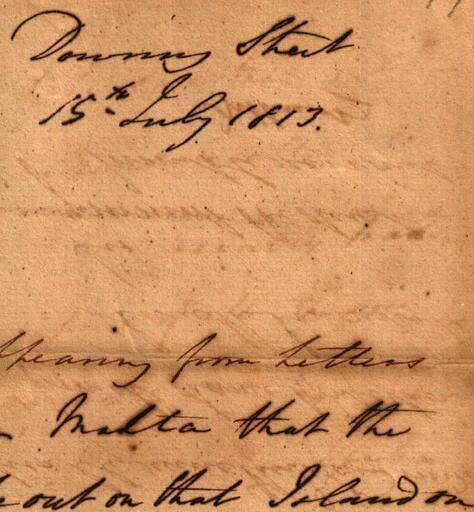 Downing Street
15th July 1813.
appearing from Letters
Malta that the
out on that Island on